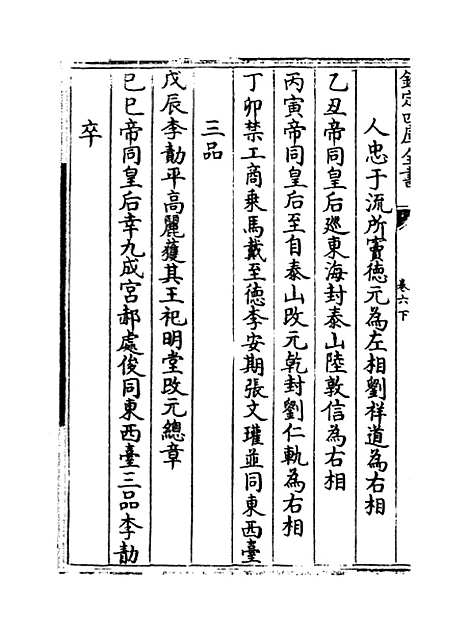 欽定四庫全書
卷六下
人忠于流所竇徳元為左相劉祥道為右相
乙丑帝同皇后廵東海封泰山陸敦信為右相
丙寅帝同皇后至自泰山改元乾封劉仁軌為右相
丁卯禁工商乗馬戴至徳李安期張文瓘並同東西臺
三品
戊辰李勣平高麗獲其王祀明堂改元總章
己巳帝同皇后幸九成宫郝處俊同東西臺三品李勣
卒